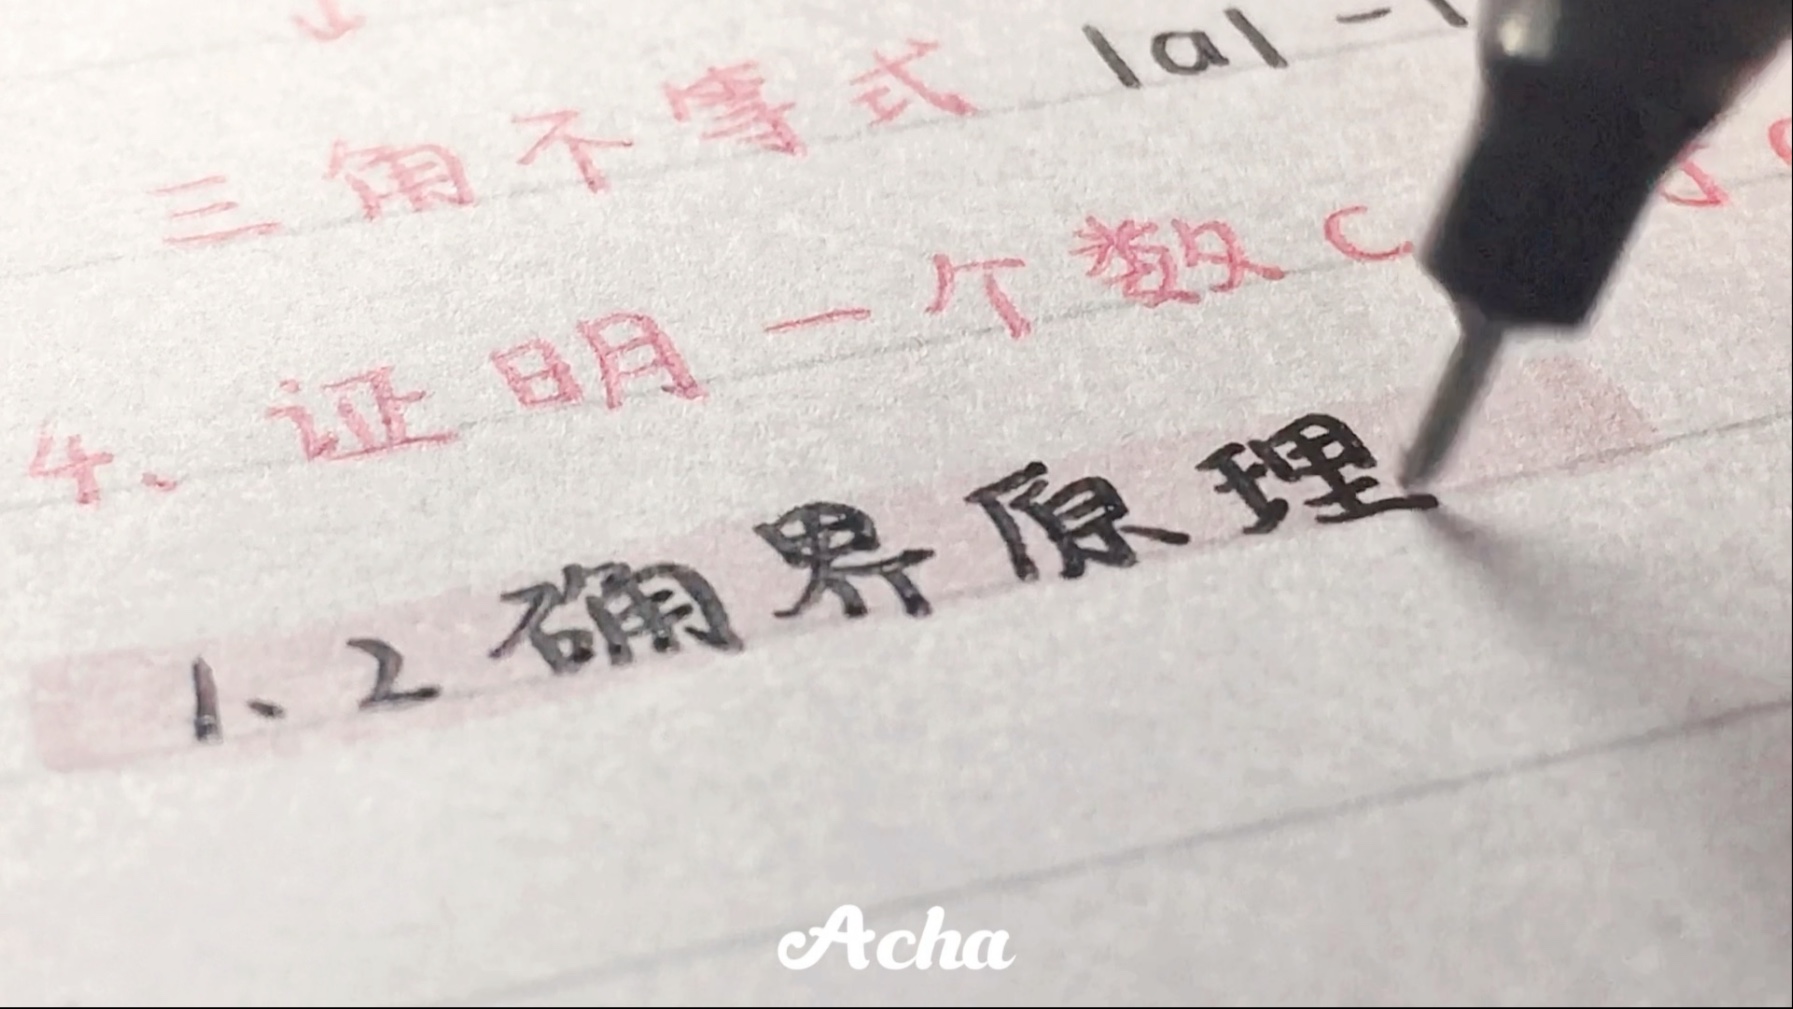 三角不等式 |a| -
4、证明一个数 C
1、2 确界原理
Acha